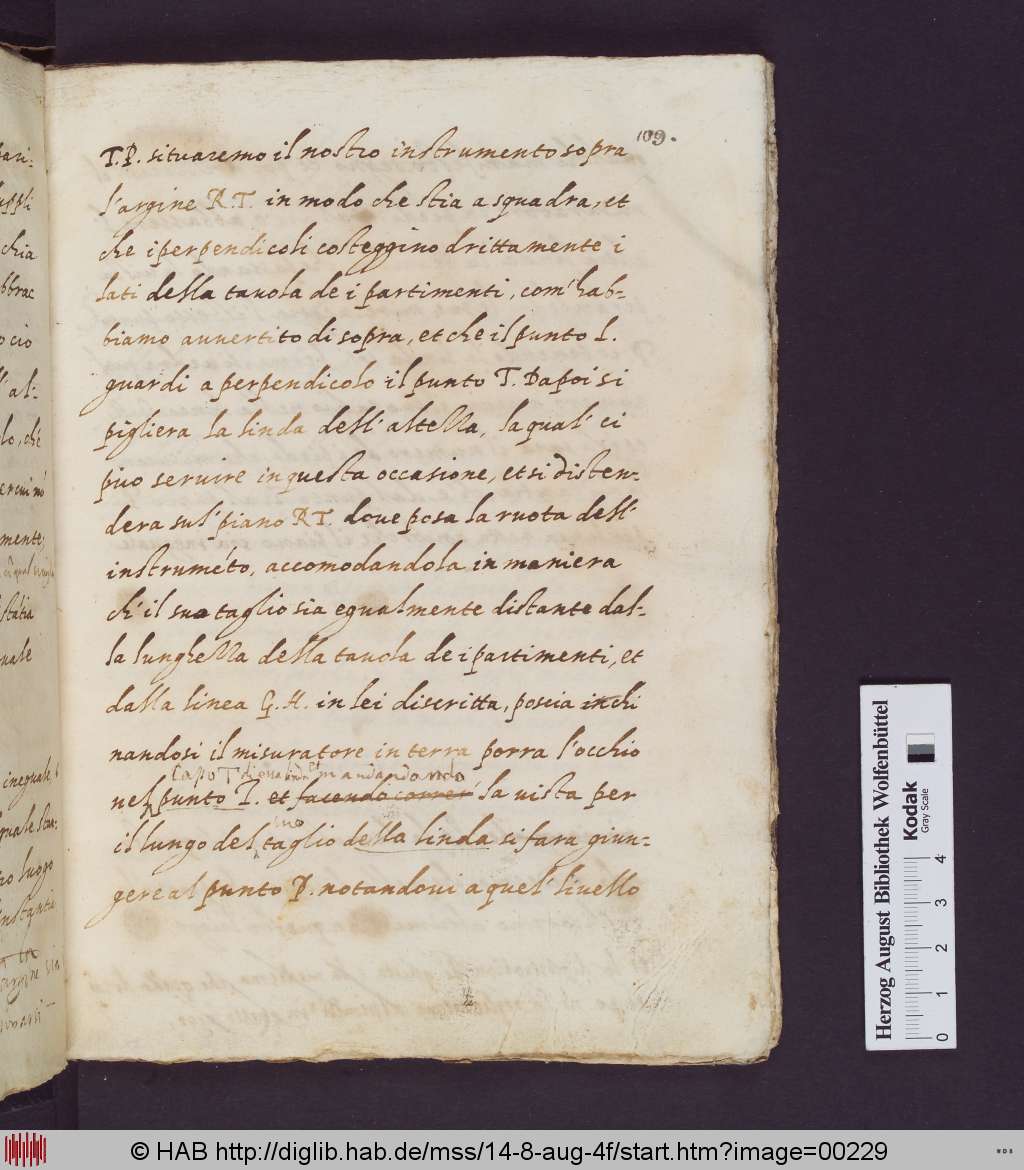 109.
T.P. situaremo il nostro instrumento sopra
l'argine R.T. in modo che stia a squadra, et
che i perpendicoli costeggino drittamente i
lati della tavola de i partimenti, com'hab-
biamo avvertito di sopra, et che il punto I.
guardi a perpendicolo il punto T. Dapoi si
pigliera la linda dell'altella, laqual' ci
puo servire in questa occasione, et si disten-
dera sul' piano RT. dove posa la ruota dell'
instruméto, accomodandola in maniera
ch'il suo taglio sia egualmente distante dal-
la lunghella della tavola de i partimenti, et
dalla linea G.H. in lei discritta, poscia inchi
nandosi il misuratore in terra porra l'occhio
capo T mandando
nel punto I. et facendo correr la vista per
il lungo del taglio della linda si fara giun-
gere al punto P. notandovi a quel' livello
pari-
uppli
chia
bbrac
o cio
l'al-
lo, ché
mente;
statia
uale
ineguale
luogo
Herzog August Bibliothek Wolfenbüttel
Kodak
Gray Scale
0 1 2 3 4
© HAB http://diglib.hab.de/mss/14-8-aug-4f/start.htm?image=00229